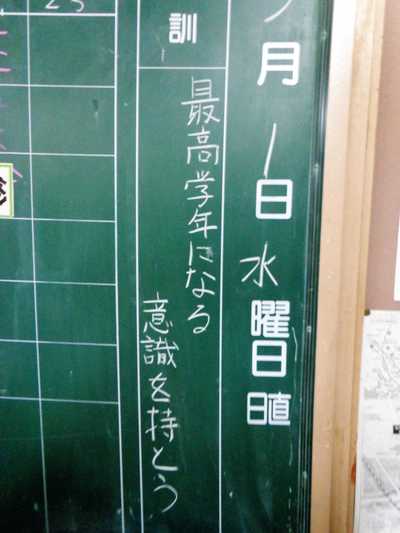 月1日水曜日直
訓
最高学年になる
意識を持とう